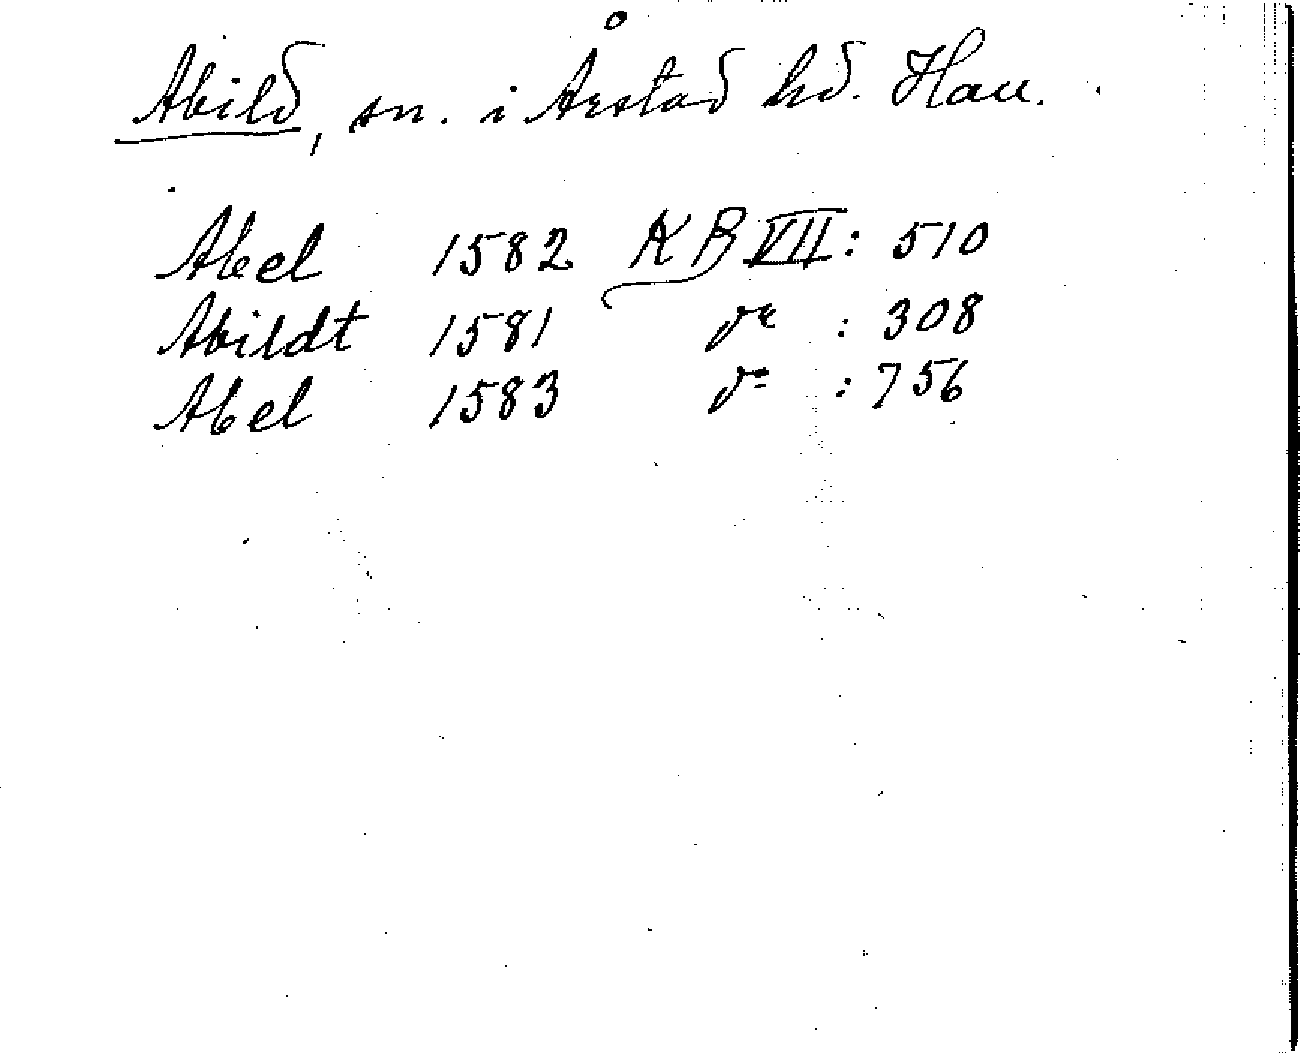 Abild, sn. i Årstad hd. Hall.
Abel 1582 KB VII: 510
Abildt 1581 do : 308
Abel 1583 do : 756